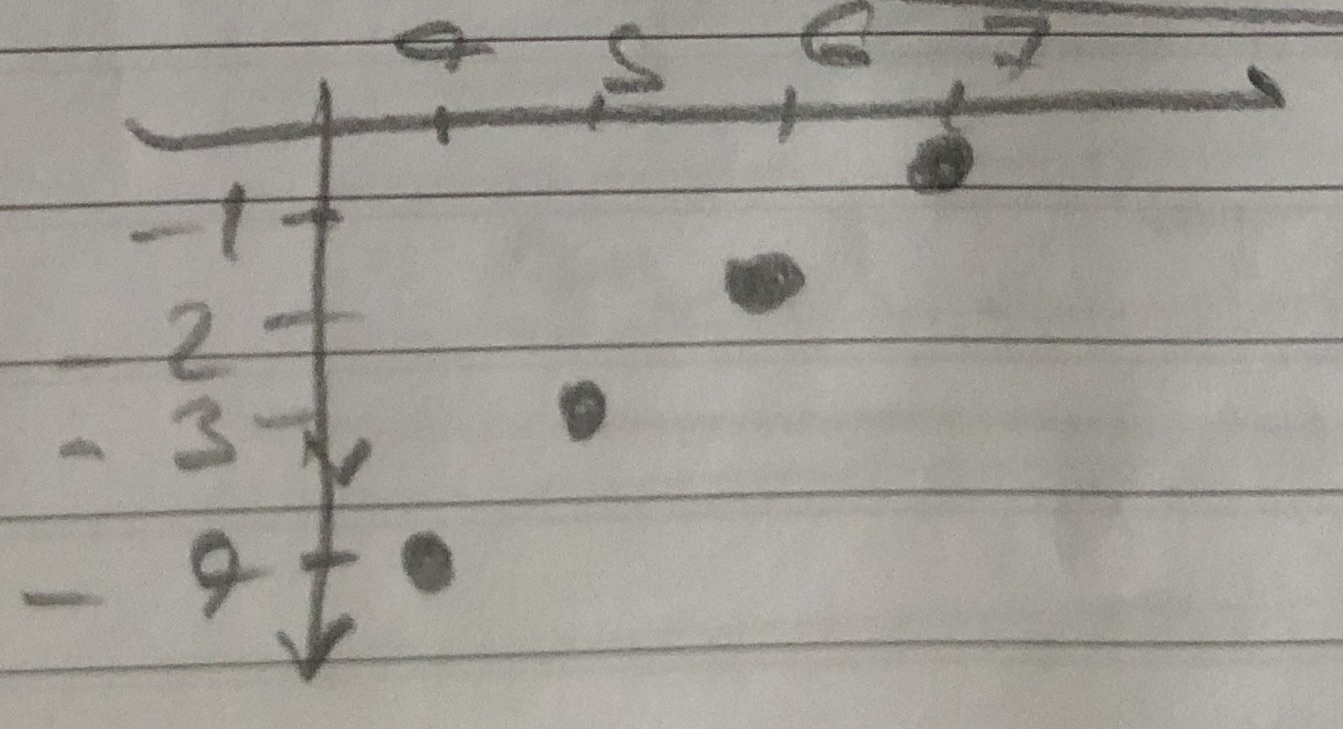 4 5 6 7
-1
-2
-3
-4